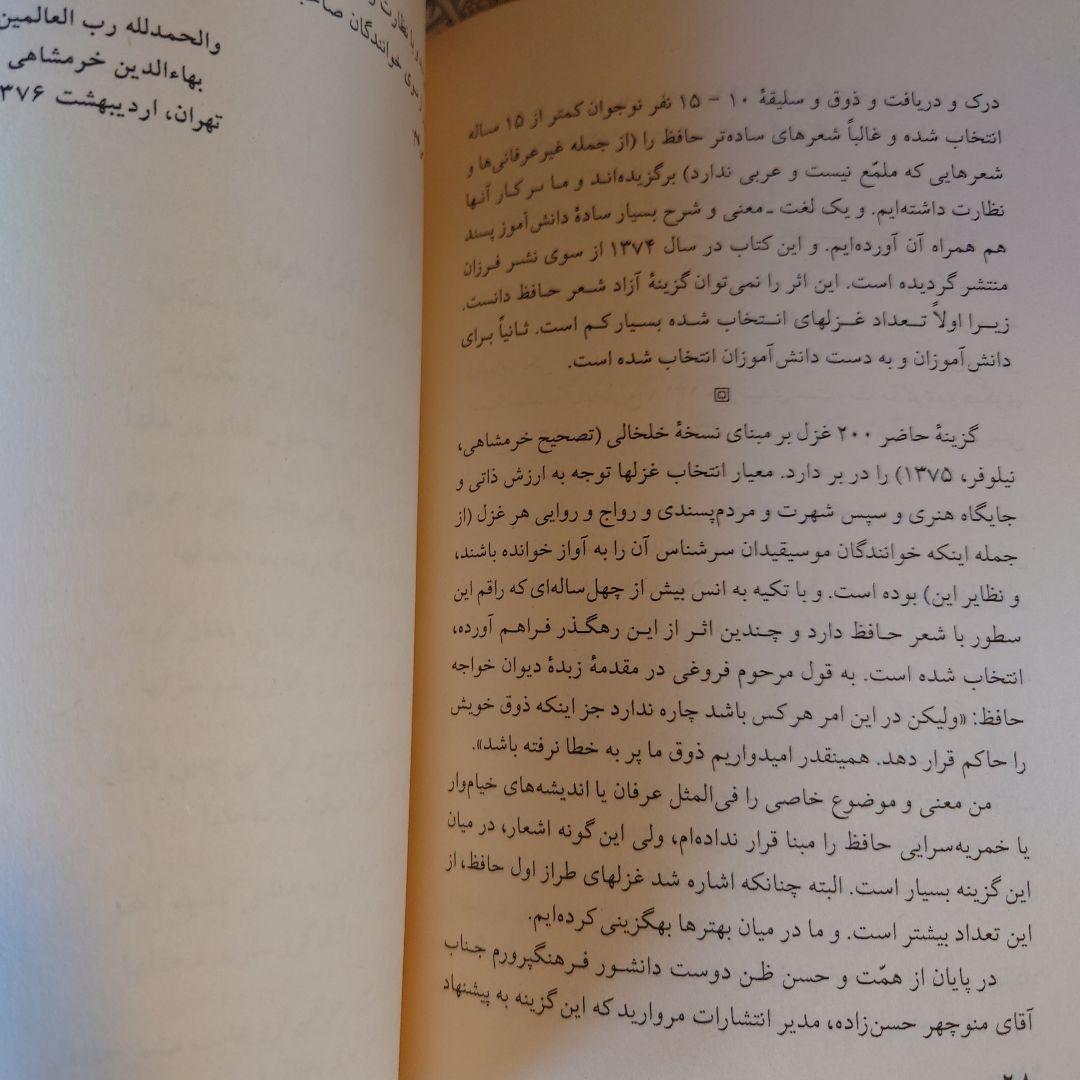 درک و دریافت و ذوق و سلیقهٔ ۱۰ - ۱۵ نفر نوجوان کمتر از ۱۵ ساله
انتخاب شده و غالباً شعرهای ساده‌تر حافظ را (از جمله غیرعرفانی‌ها و
شعرهایی که ملمّع نیست و عربی ندارد) برگزیده‌اند و ما بر کار آنها
نظارت داشته‌ایم. و یک لغت ـ معنی و شرح بسیار سادهٔ دانش‌آموز پسند
هم همراه آن آورده‌ایم. و این کتاب در سال ۱۳۷۴ از سوی نشر فرزان
منتشر گردیده است. این اثر را نمی‌توان گزینهٔ آزاد شعر حافظ دانست.
زیرا اولاً تعداد غزلهای انتخاب شده بسیار کم است. ثانیاً برای
دانش‌آموزان و به دست دانش‌آموزان انتخاب شده است.
گزینهٔ حاضر ۲۰۰ غزل بر مبنای نسخهٔ خلخالی (تصحیح خرمشاهی،
نیلوفر، ۱۳۷۵) را در بر دارد. معیار انتخاب غزلها توجه به ارزش ذاتی و
جایگاه هنری و سپس شهرت و مردم‌پسندی و رواج و روایی هر غزل (از
جمله اینکه خوانندگان موسیقیدان سرشناس آن را به آواز خوانده باشند،
و نظایر این) بوده است. و با تکیه به انس بیش از چهل‌ساله‌ای که راقم این
سطور با شعر حافظ دارد و چندین اثر از این رهگذر فراهم آورده،
انتخاب شده است. به قول مرحوم فروغی در مقدمهٔ زبدهٔ دیوان خواجه
حافظ: «ولیکن در این امر هرکس باشد چاره ندارد جز اینکه ذوق خویش
را حاکم قرار دهد. همینقدر امیدواریم ذوق ما پر به خطا نرفته باشد».
من معنی و موضوع خاصی را فی‌المثل عرفان یا اندیشه‌های خیام‌وار
یا خمریه‌سرایی حافظ را مبنا قرار نداده‌ام، ولی این گونه اشعار، در میان
این گزینه بسیار است. البته چنانکه اشاره شد غزلهای طراز اول حافظ، از
این تعداد بیشتر است. و ما در میان بهترها بهگزینی کرده‌ایم.
در پایان از همّت و حسن ظن دوست دانشور فرهنگپرورم جناب
آقای منوچهر حسن‌زاده، مدیر انتشارات مروارید که این گزینه به پیشنهاد
با نظارت
خوانندگان
والحمدلله رب العالمین
بهاءالدین خرمشاهی
تهران، اردیبهشت ۳۷۶